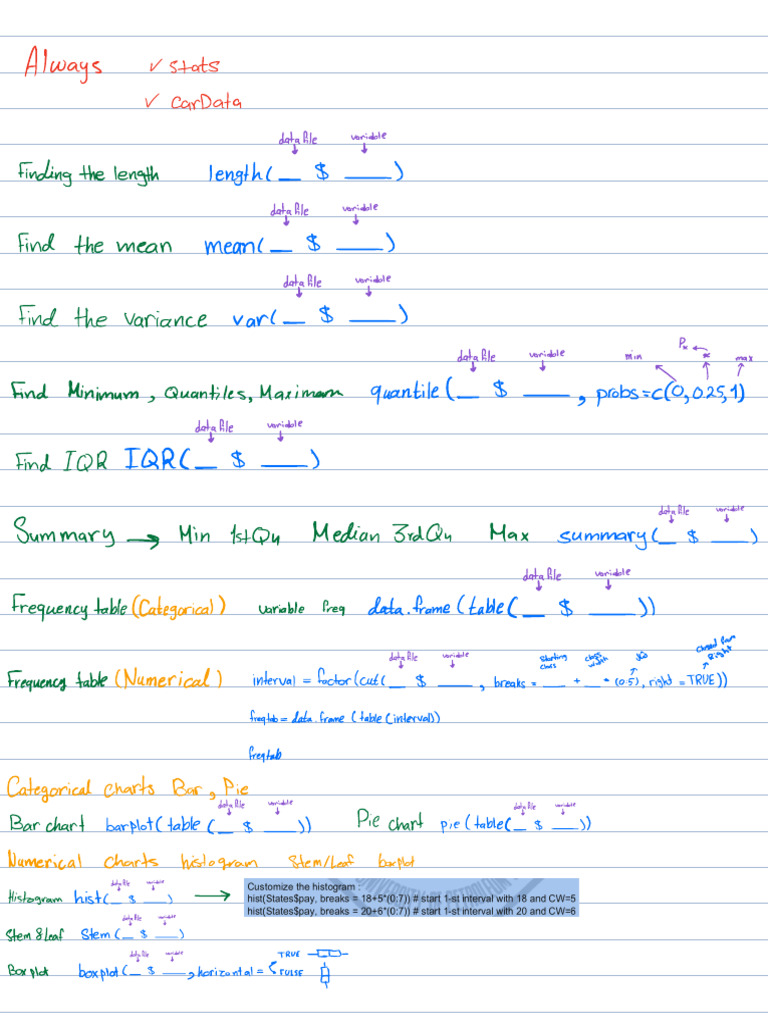 Always ✓ stats
✓ carData
data file variable
Finding the length length(__ $ ___)
data file variable
Find the mean mean(__ $ ___)
data file variable
Find the variance var(__ $ ___)
data file variable min Px x max
Find Minimum, Quantiles, Maximam quantile(__ $ ___, probs=c(0,0.25,1)
data file variable
Find IQR IQR(__ $ ___)
data file variable
Summary → Min 1stQu Median 3rdQu Max summary(__ $ ___)
data file variable
Frequency table (Categorical) variable freq data.frame(table(__ $ ___))
data file variable starting class class width closed from Right
Frequency table (Numerical) interval = factor(cut(__ $ ___, breaks = ___ + __ * (0:5), right = TRUE))
freqtab = data.frame (table(interval))
freqtab
Categorical charts Bar, Pie
data file variable data file variable
Bar chart barplot(table (__ $ ___)) Pie chart pie(table(__ $ ___))
Numerical charts histogram Stem/Leaf boxplot
data file variable
Histogram hist(__ $ ___) →
Customize the histogram :
hist(States$pay, breaks = 18+5*(0:7)) # start 1-st interval with 18 and CW=5
hist(States$pay, breaks = 20+6*(0:7)) # start 1-st interval with 20 and CW=6
data file variable
Stem & Leaf Stem(__ $ ___)
data file variable
Box plot boxplot(__ $ ___, horizontal = TRUE
FULSE